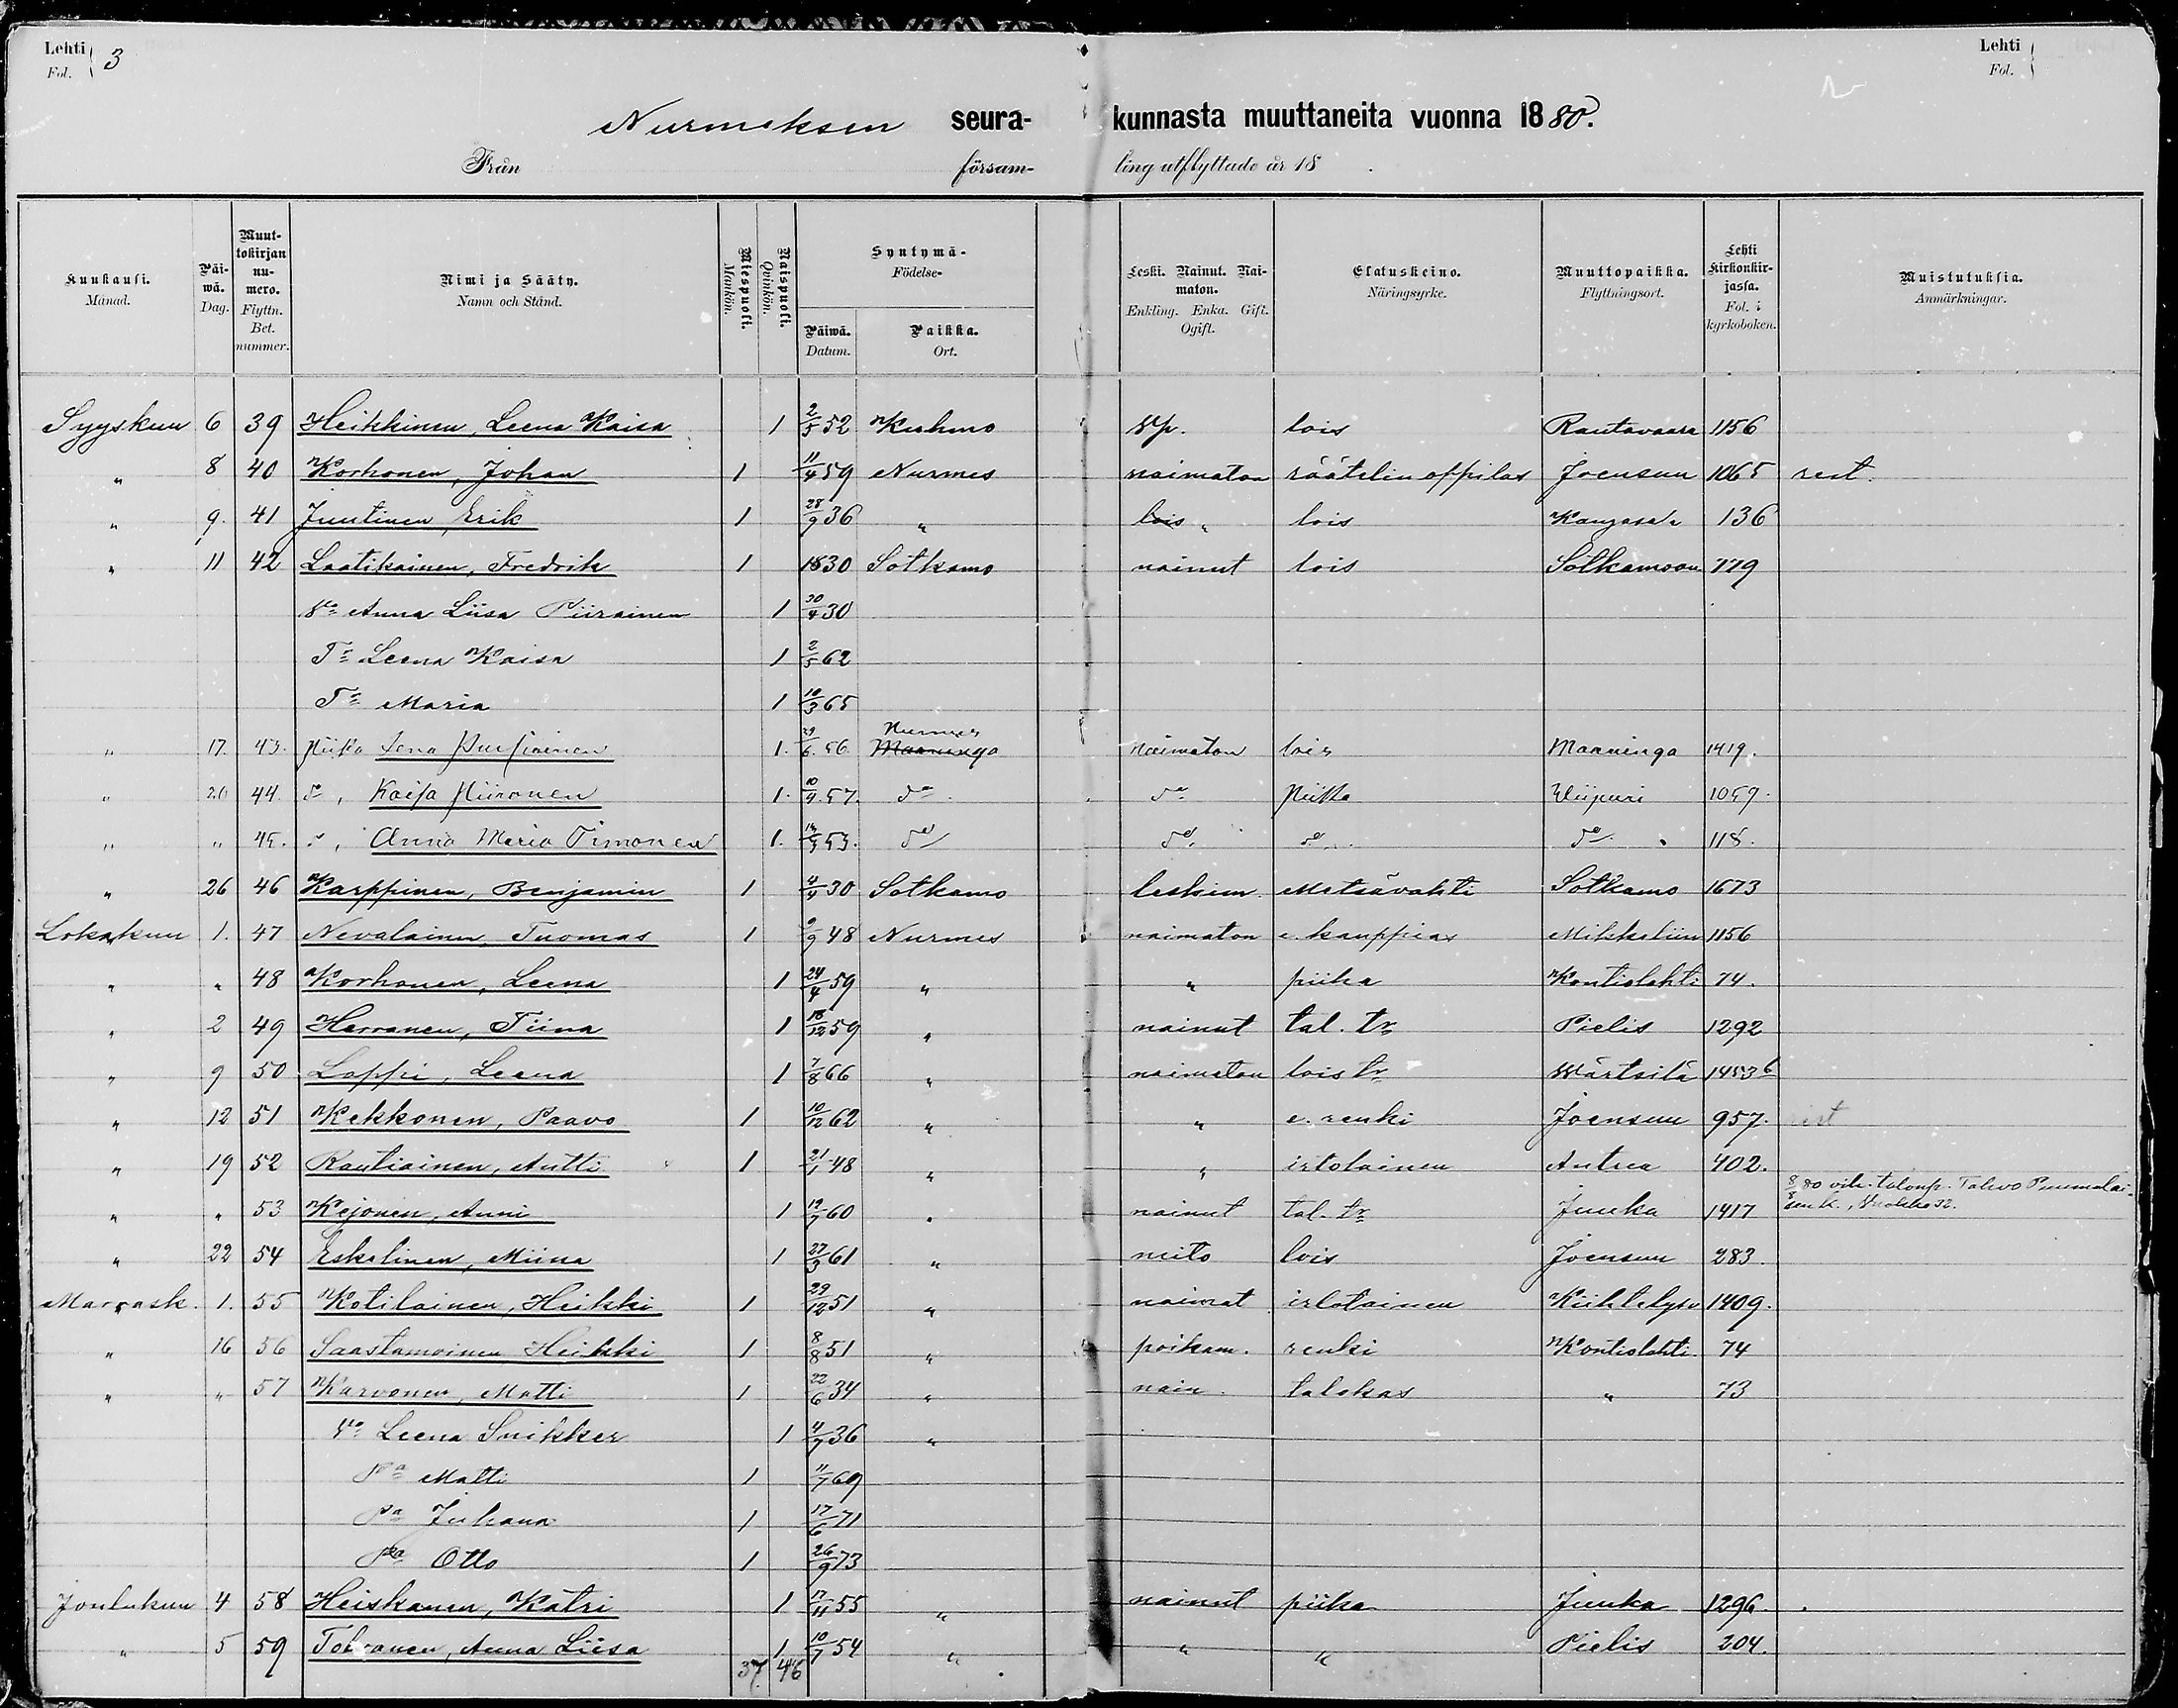 Lehti 3 Lehti
Fol. Fol.
Nurmeksen seura- kunnasta muuttaneita vuonna 1880.
Från försam- ling utflyttade år 18 .
Kuukausi. Månad. Päi-wä. Dag. Muut-tokirjan nu-mero. Flyttn. Bet. nummer. Nimi ja Sääty. Namn och Stånd. Miespuoli. Mankön. Naispuoli. Qvinkön. Syntymä- Födelse- Päiwä. Datum. Paikka. Ort. Leski. Nainut. Nai-maton. Enkling. Enka. Gift. Ogift. Elatuskeino. Näringsyrke. Muuttopaikka. Flyttningsort. Lehti Kirkonkir-jassa. Fol. i kyrkoboken. Muistutuksia. Anmärkningar.
Syyskuu 6 39 Heikkinen, Leena Kaisa 1 2/5 52 Kuhmo lois Rautavaara 1156
" 8 40 Korhonen, Johan 1 11/4 59 Nurmes naimaton räätelin oppilas Joensuu 1065 rest.
" 9. 41 Juutinen, Erik 1 28/9 36 " lois " lois Kangasala 136
" 11 42 Laatikainen, Fredrik 1 1830 Sotkamo nainut lois Sotkamoon 779
Vo Anna Liisa Piirainen 1 30/4 30
Tr Leena Kaisa 1 2/5 62
Tr Maria 1 10/3 65
" 17. 43. Piika Lena Pursiainen 1. 29/6. 56. Maaninga Nurmes Naimaton lois Maaninga 1419.
" 20 44. do, Kaisa Piironen 1. 10/9. 57. do do Piika Wiipuri 1059.
" " 45. do, Anna Maria Timonen 1. 53. do do. do do 118.
" 26 46 Karppinen, Benjamin 1 4/4 30 Sotkamo leskim. Metsävahti Sotkamo 1673
Lokakuu 1. 47 Nevalainen, Tuomas 1 9/9 48 Nurmes naimaton e. kauppias Mikkeliin 1156
" " 48 Korhonen, Leena 1 24/4 59 " " piika Kontiolahti 74.
" 2 49 Herranen, Tiina 1 18/12 59 " nainut tal. tr Pielis 1292
" 9 50 Loppi, Leena 1 7/8 66 " naimaton lois tr Wärtsilä 1453 b
" 12 51 Kekkonen, Paavo 1 10/12 62 " " e. renki Joensuu 957. rest
" 19 52 Rautiainen, Antti 1 21/1 48 " " irtolainen Antrea 402.
" " 53 Kejonen, Anni 1 19/7 60 " nainut tal. tr Juuka 1417 8/8 80 vih. talonp. Tahvo Puumalai-sen k.
" 22 54 Eskelinen, Miina 1 27/3 61 " neito lois Joensuu 283.
Marrask. 1. 55 Kotilainen, Heikki 1 29/12 51 " naimat irlolainen Kiihtelysv 1409.
" 16 56 Saastamoinen Heikki 1 8/8 51 " poikam. renki Kontiolahti. 74
" " 57 Karvonen, Matti 1 22/6 34 " nain. talokas " 73
Vo Leena Snikker 1 4/7 36 "
Pa Matti 1 11/7 69
Pa Juhana 1 17/6 71
Pa Otto 1 26/9 73
Joulukuu 4 58 Heiskanen, Katri 1 17/11 55 " nainut piika Juuka 1296
" 5 59 Tolvanen, Anna Liisa 1 10/7 54 " " " Pielis 204.
37. 46